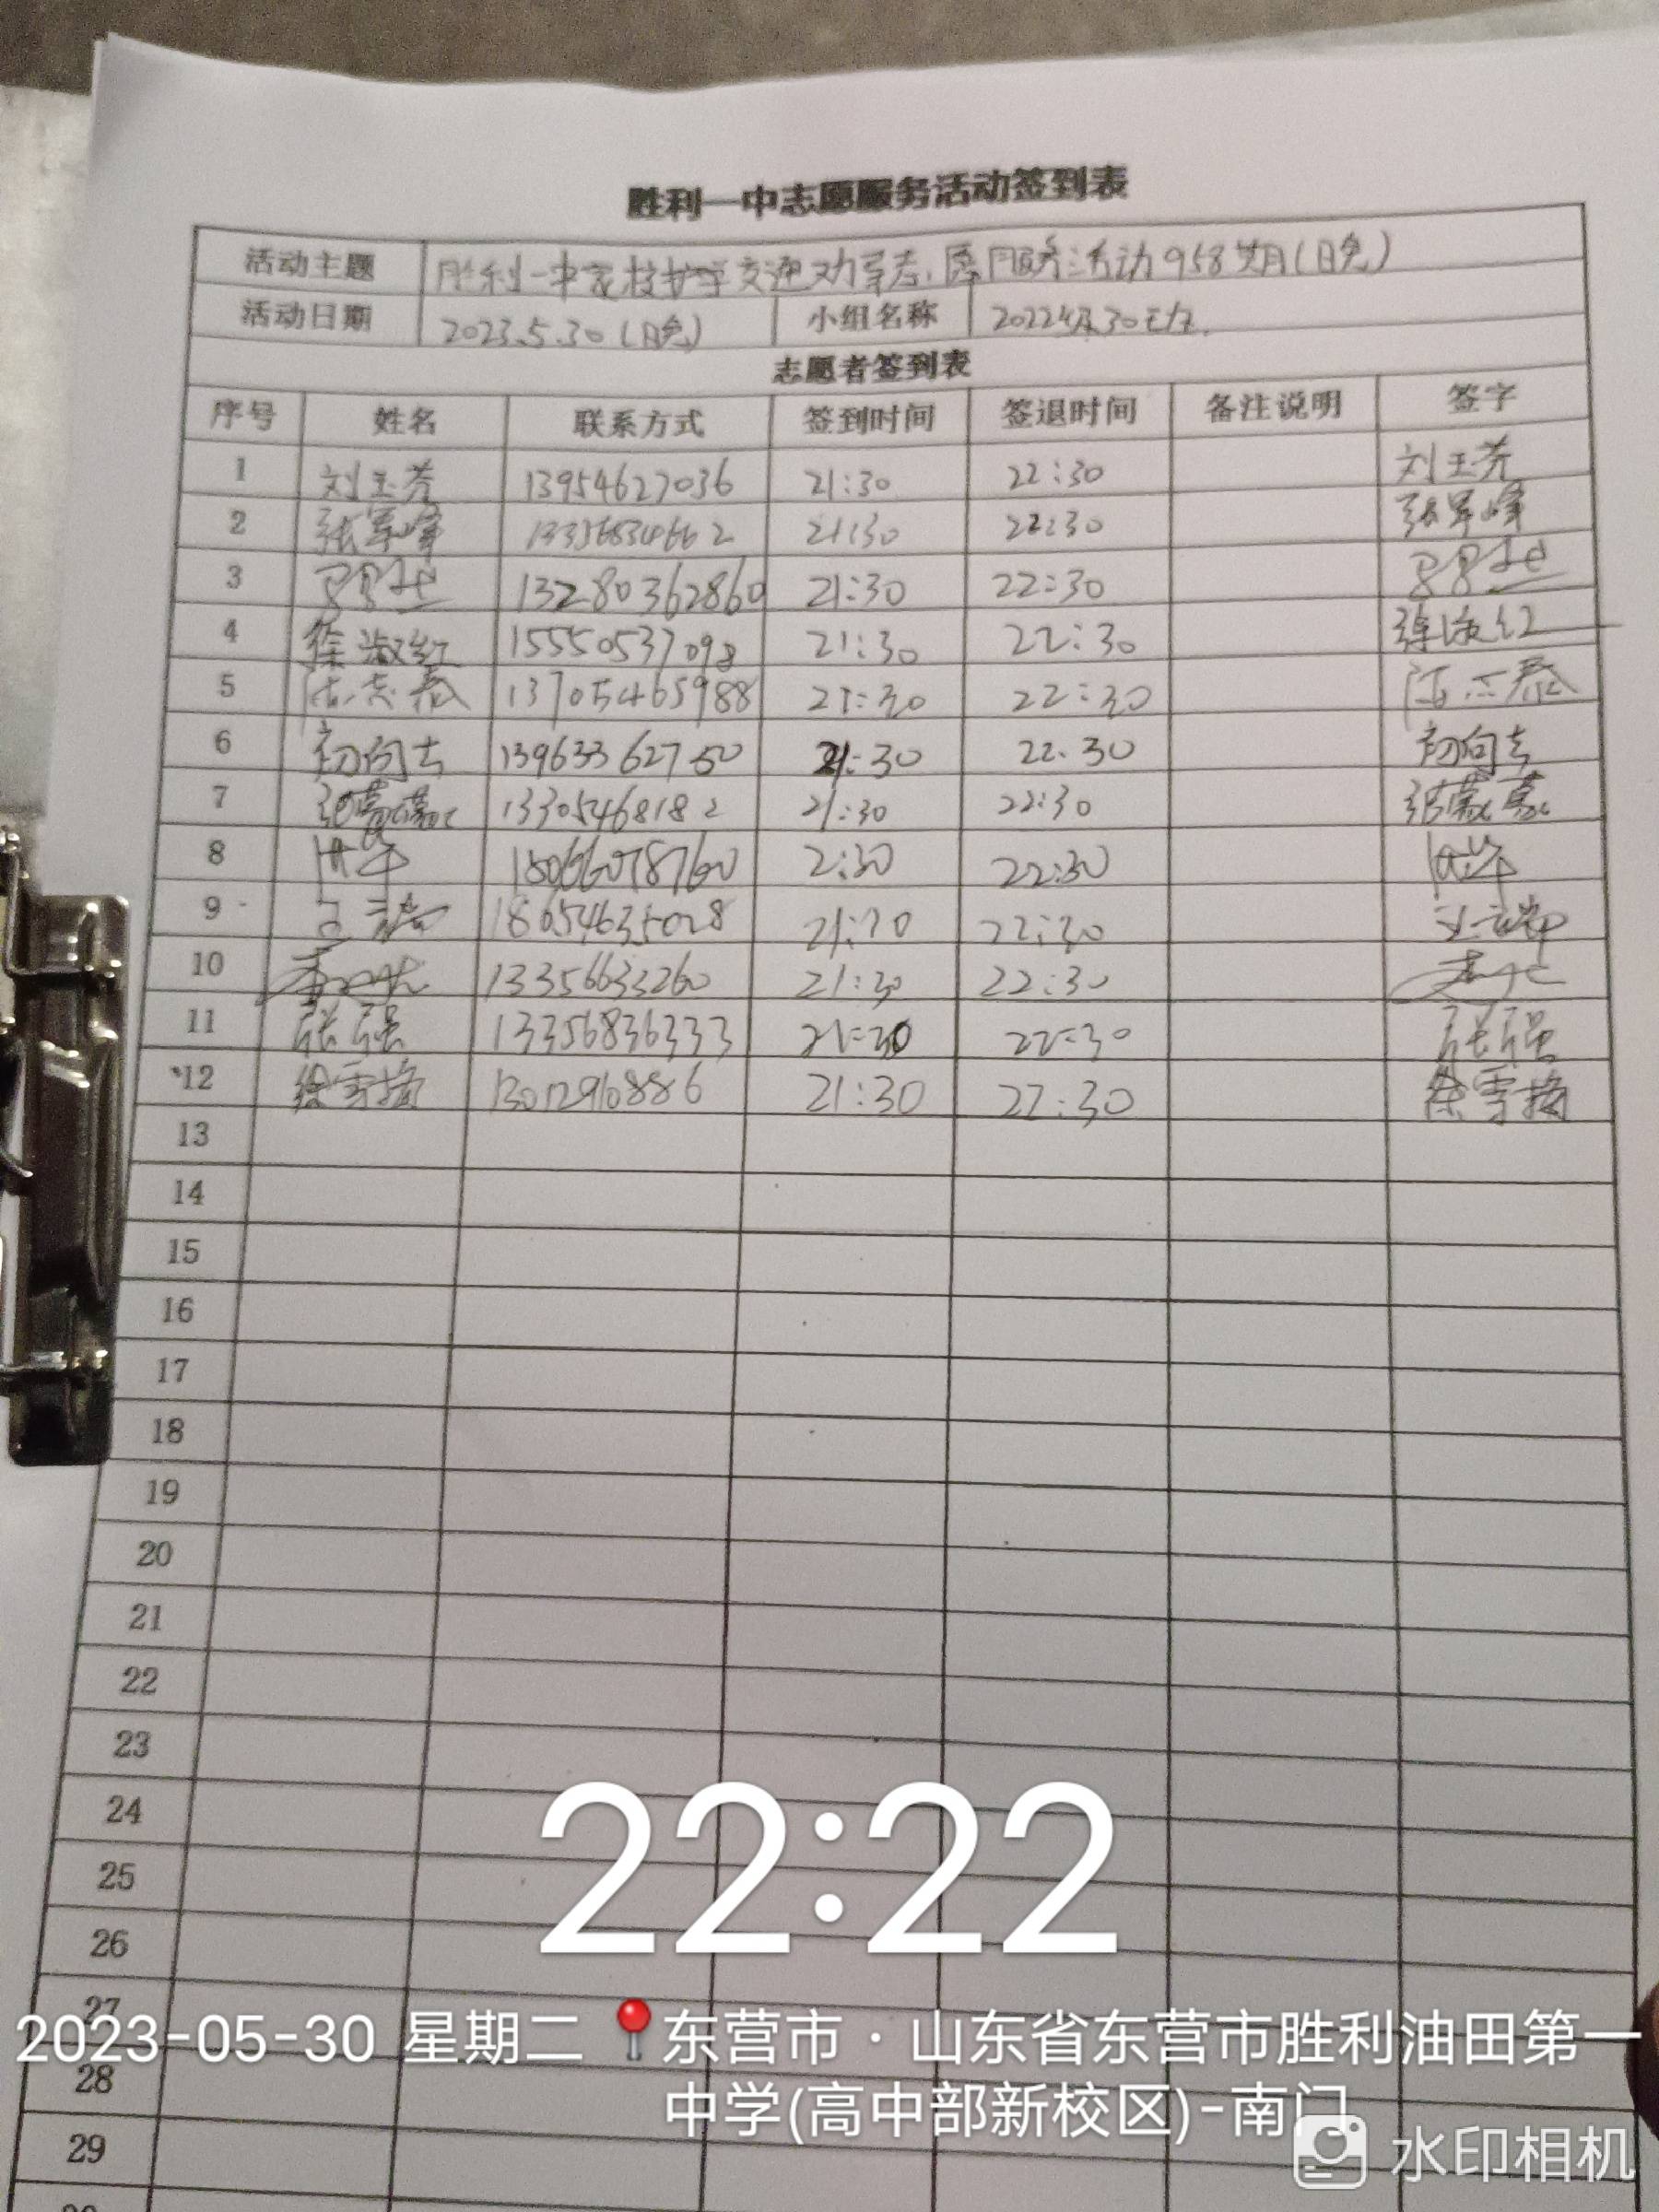 胜利一中志愿服务活动签到表
活动主题 胜利一中家校护学交通劝导志愿服务活动958期(晚)
活动日期 2023.5.30(晚) 小组名称 2022级30
志愿者签到表
序号 姓名 联系方式 签到时间 签退时间 备注说明 签字
1 刘玉芳 13954627036 21:30 22:30 刘玉芳
2 张军峰 13356834662 21:30 22:30 张军峰
3 13280362860 21:30 22:30
4 徐淑红 15550537098 21:30 22:30 徐淑红
5 陈志泰 13705465988 21:30 22:30 陈志泰
6 初向吉 13963362750 21:30 22:30 初向吉
7 13305468182 21:30 22:30
8 18066078760 2:30 22:30
9 18654635028 21:30 22:30
10 13356633260 21:30 22:30
11 张强 13356836333 21:30 22:30 张强
12 徐雪梅 13012910886 21:30 22:30 徐雪梅
13
14
15
16
17
18
19
20
21
22
23
24
25
26
27
28
29
22:22
2023-05-30 星期二 东营市 · 山东省东营市胜利油田第一
中学(高中部新校区)-南门
水印相机